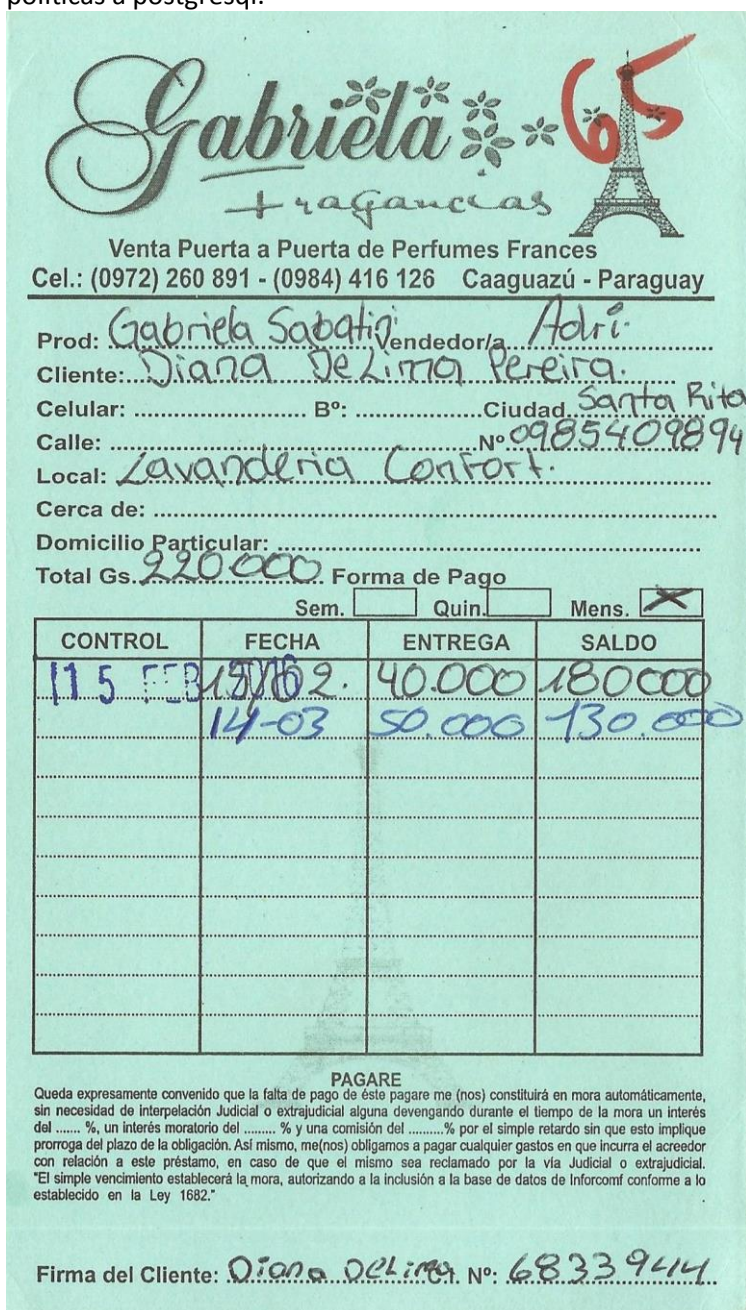 politicas a postgresql.
Gabriela 65
Fragancias
Venta Puerta a Puerta de Perfumes Frances
Cel.: (0972) 260 891 - (0984) 416 126 Caaguazú - Paraguay
Prod: Gabriela Sabatini Vendedor/a Adri.
Cliente: Diana De Lima Pereira.
Celular: ........................ Bº: ..................Ciudad Santa Rita
Calle: ...............................................Nº 0985409894
Local: Lavanderia Confort.
Cerca de: .......................................................................
Domicilio Particular: .......................................................
Total Gs. 220.000 Forma de Pago
Sem. Quin. Mens. X
CONTROL FECHA ENTREGA SALDO
15 FEB 2016 15/02. 40.000 180000
14-03 50.000 130.000
PAGARE
Queda expresamente convenido que la falta de pago de éste pagare me (nos) constituirá en mora automáticamente,
sin necesidad de interpelación Judicial o extrajudicial alguna devengando durante el tiempo de la mora un interés
del ....... %, un interés moratorio del ......... % y una comisión del ..........% por el simple retardo sin que esto implique
prorroga del plazo de la obligación. Así mismo, me(nos) obligamos a pagar cualquier gastos en que incurra el acreedor
con relación a este préstamo, en caso de que el mismo sea reclamado por la vía Judicial o extrajudicial.
"El simple vencimiento establecerá la mora, autorizando a la inclusión a la base de datos de Inforcomf conforme a lo
establecido en la Ley 1682."
Firma del Cliente: Diana DeLima. Nº: 6833944